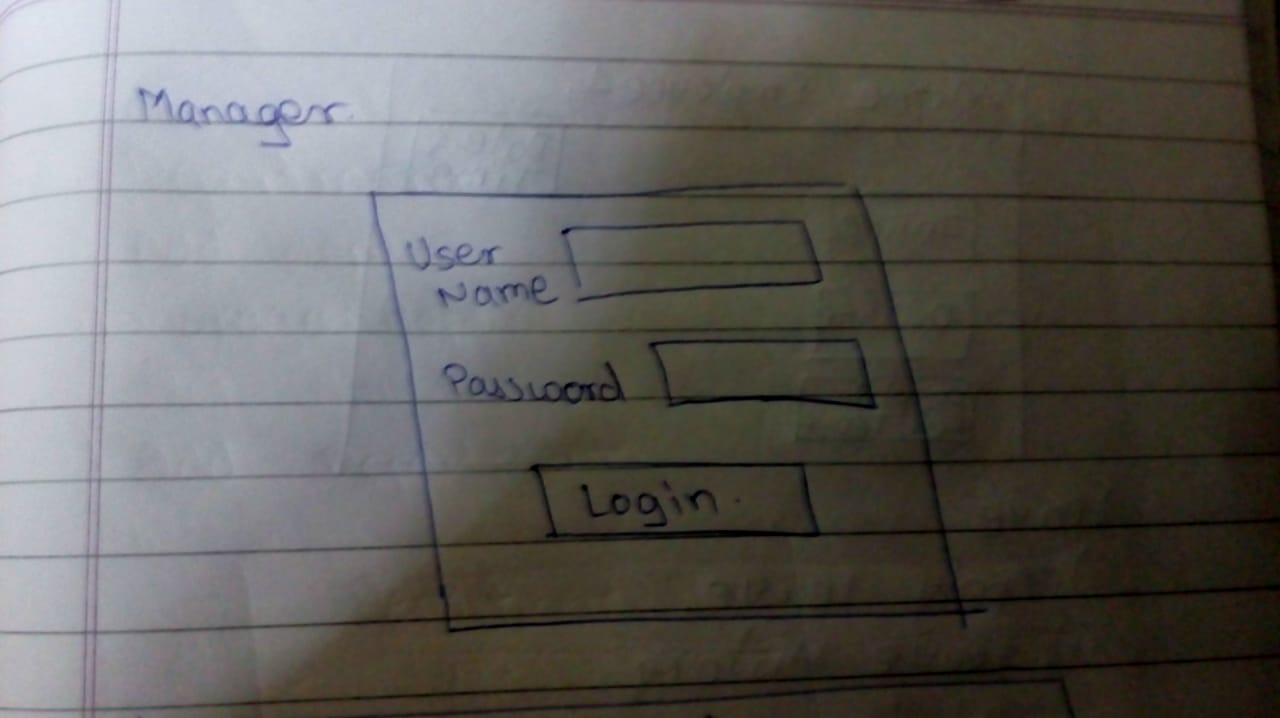 Manager.
User
Name
Password
Login.